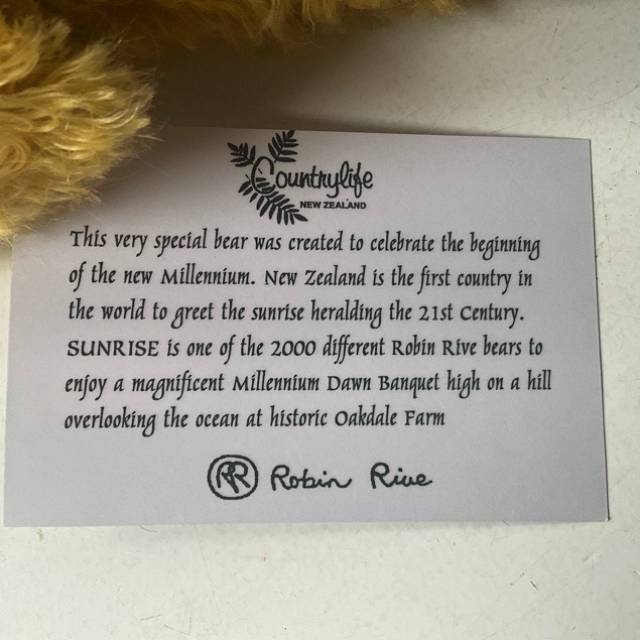 Countrylife
NEW ZEALAND
This very special bear was created to celebrate the beginning
of the new Millennium. New Zealand is the first country in
the world to greet the sunrise heralding the 21st Century.
SUNRISE is one of the 2000 different Robin Rive bears to
enjoy a magnificent Millennium Dawn Banquet high on a hill
overlooking the ocean at historic Oakdale Farm
RR Robin Rive